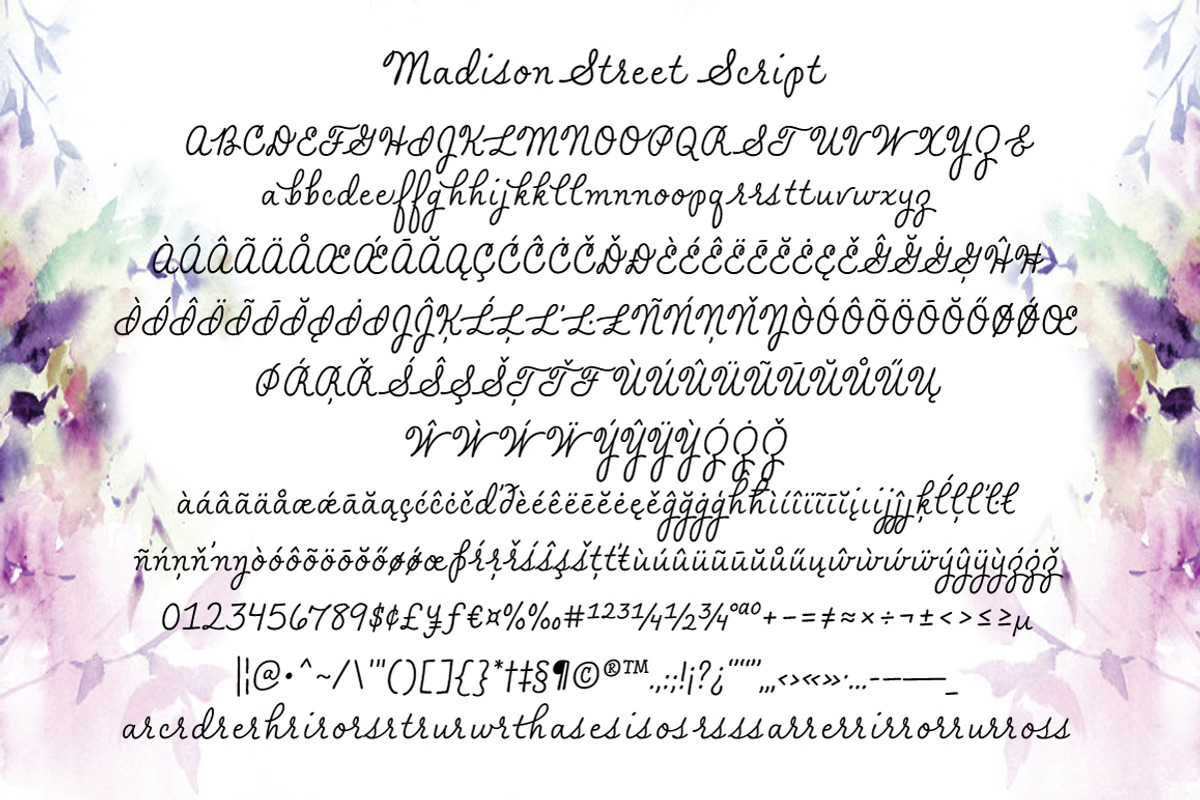 Madison Street Script
ABCDEFGHIJKLMNOOPQRSTUVWXYZ&
abbcdeeffghhijkkllmnnoopqrrsttuvwxyz
ÀÁÂÃÄÅÆǼĀĂĄÇĆĈĊČĎĐÈÉÊËĒĔĖĘĚĜĞĠĢĤĦ
ÌÍÎÏĨĪĬĮİIJĴĶĹĻĽĿŁÑŃŅŇŊÒÓÔÕÖŌŎŐØǾŒ
ÞŔŖŘŚŜŞŠŢŤŦÙÚÛÜŨŪŬŮŰŲ
ŴẀẂẄÝŶŸỲŹŻŽ
àáâãäåæǽāăąçćĉċčďðèéêëēĕėęěĝğġģĥħìíîïĩīĭįıijĵȷķĺļľŀł
ñńņňŉŋòóôõöōŏőøǿœþŕŗřśŝşšţťŧùúûüũūŭůűųŵẁẃẅýŷÿỳźżž
0123456789$¢£¥ƒ€¤%‰#¹²³¼½¾°ªº+−=≠≈×÷¬±<>≤≥µ
|¦@•^~/\'"()[]{}*†‡§¶©®™.,:;!¡?¿‘’“”‚„‹›«»·…-–—_
arcrdrerhrirorsrtrurwrthasesisosrsssarrerrirrorrurross